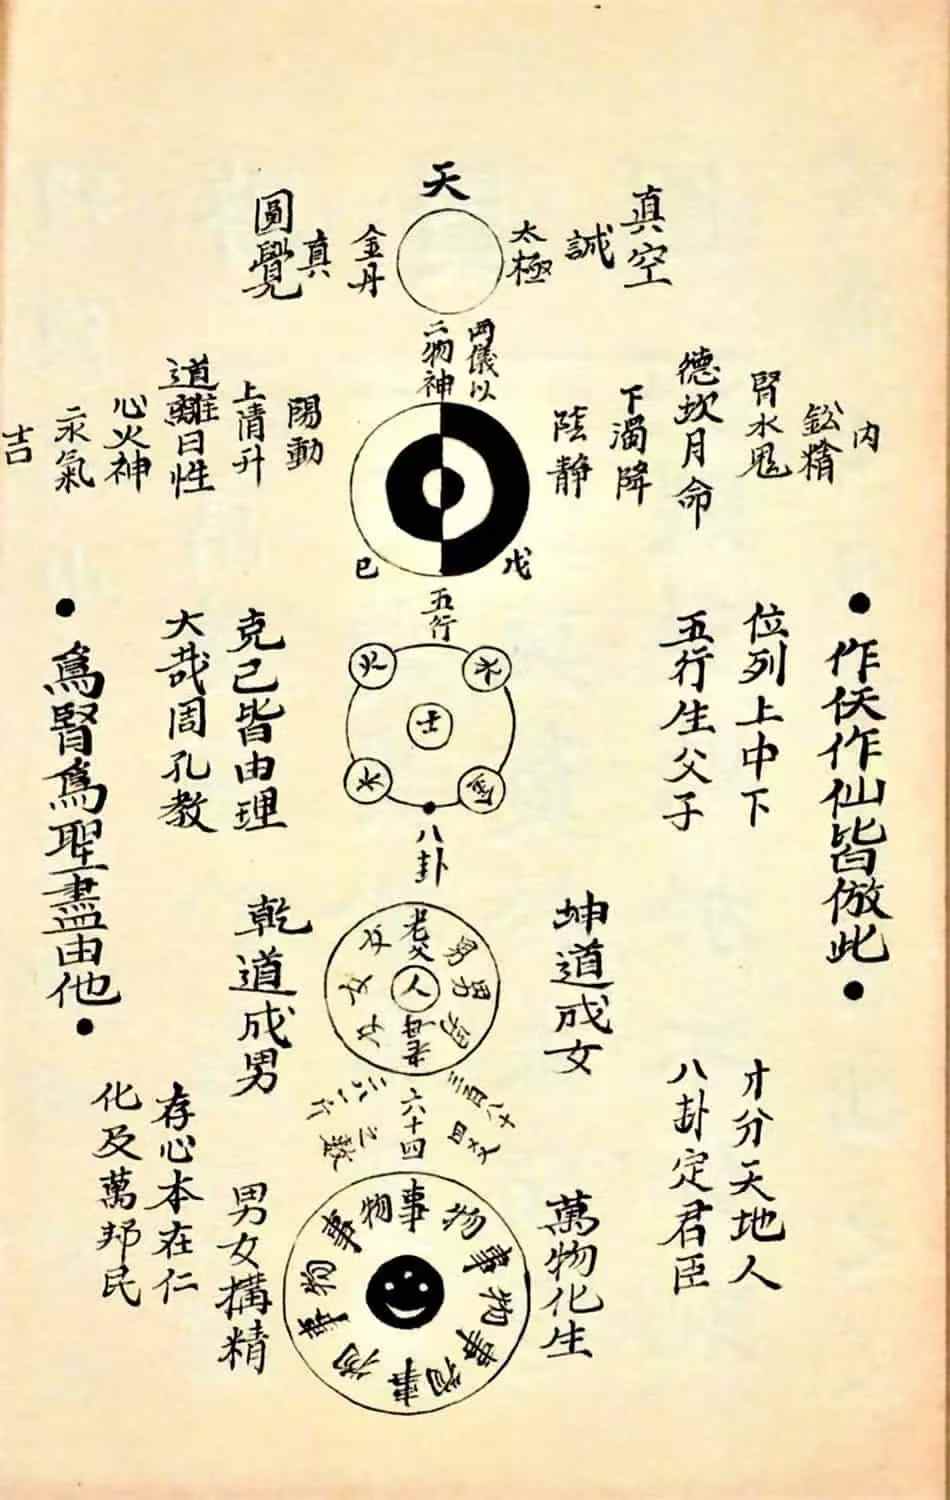 天
真空
誠
太極
金丹
真
圓覺
兩儀以
二物神
內
鈆精
腎水鬼
德坎月命
下濁降
陰静
陽動
上清升
道離日性
心火神
汞氣
吉
戊
己
五行
水
火
土
木
金
八卦
作仸作仙皆倣此
位列上中下
五行生父子
克己皆由理
大哉周孔教
為腎為聖盡由他
坤道成女
乾道成男
老父
男
男
男
人
女
女
女
六十四
三百八十
四爻
之數
才分天地人
八卦定君臣
萬物化生
男女搆精
存心本在仁
化及萬邦民
事
物
事
物
事
物
事
物
事
物
事
物